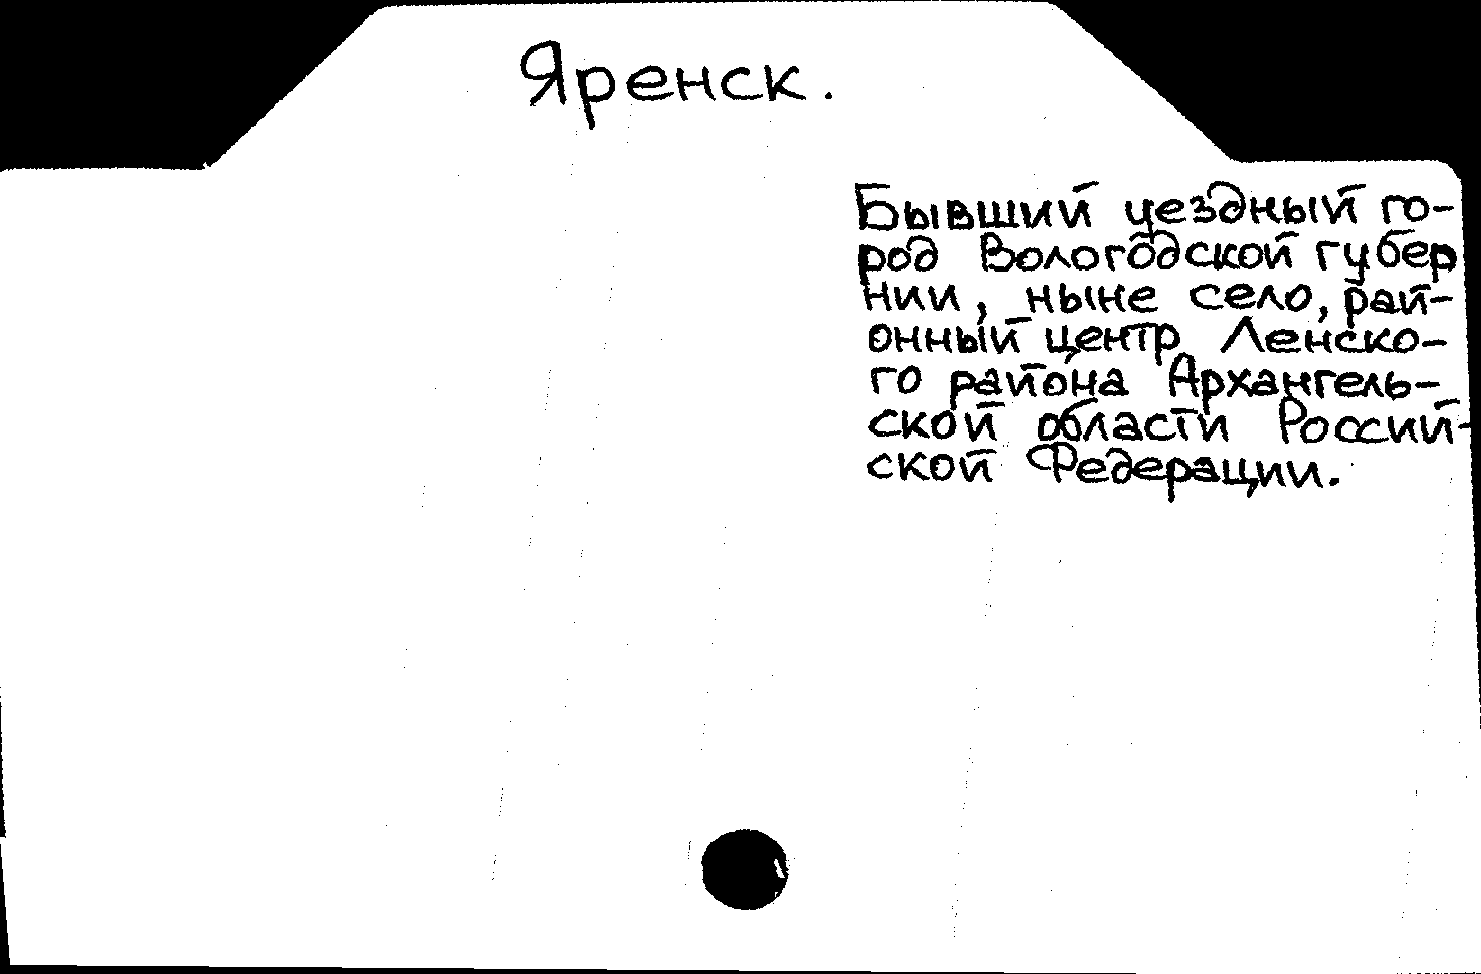 Яренск.
Бывший уездный го-
род Вологодской губер
нии, ныне село, рай-
онный центр Ленско-
го района Архангель-
ской области Россий-
ской Федерации.